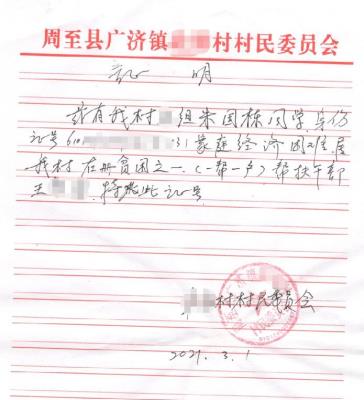 周至县广济镇村村民委员会
证 明
兹有我村组朱国栋同学,身份
证号610 31家庭经济困难,属
我村在册贫困之一,(一帮一户)帮扶干部
王 .特此证
村村民委员会
2021.3.1